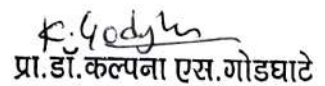 K. Godghate
प्रा.डॉ.कल्पना एस.गोडघाटे